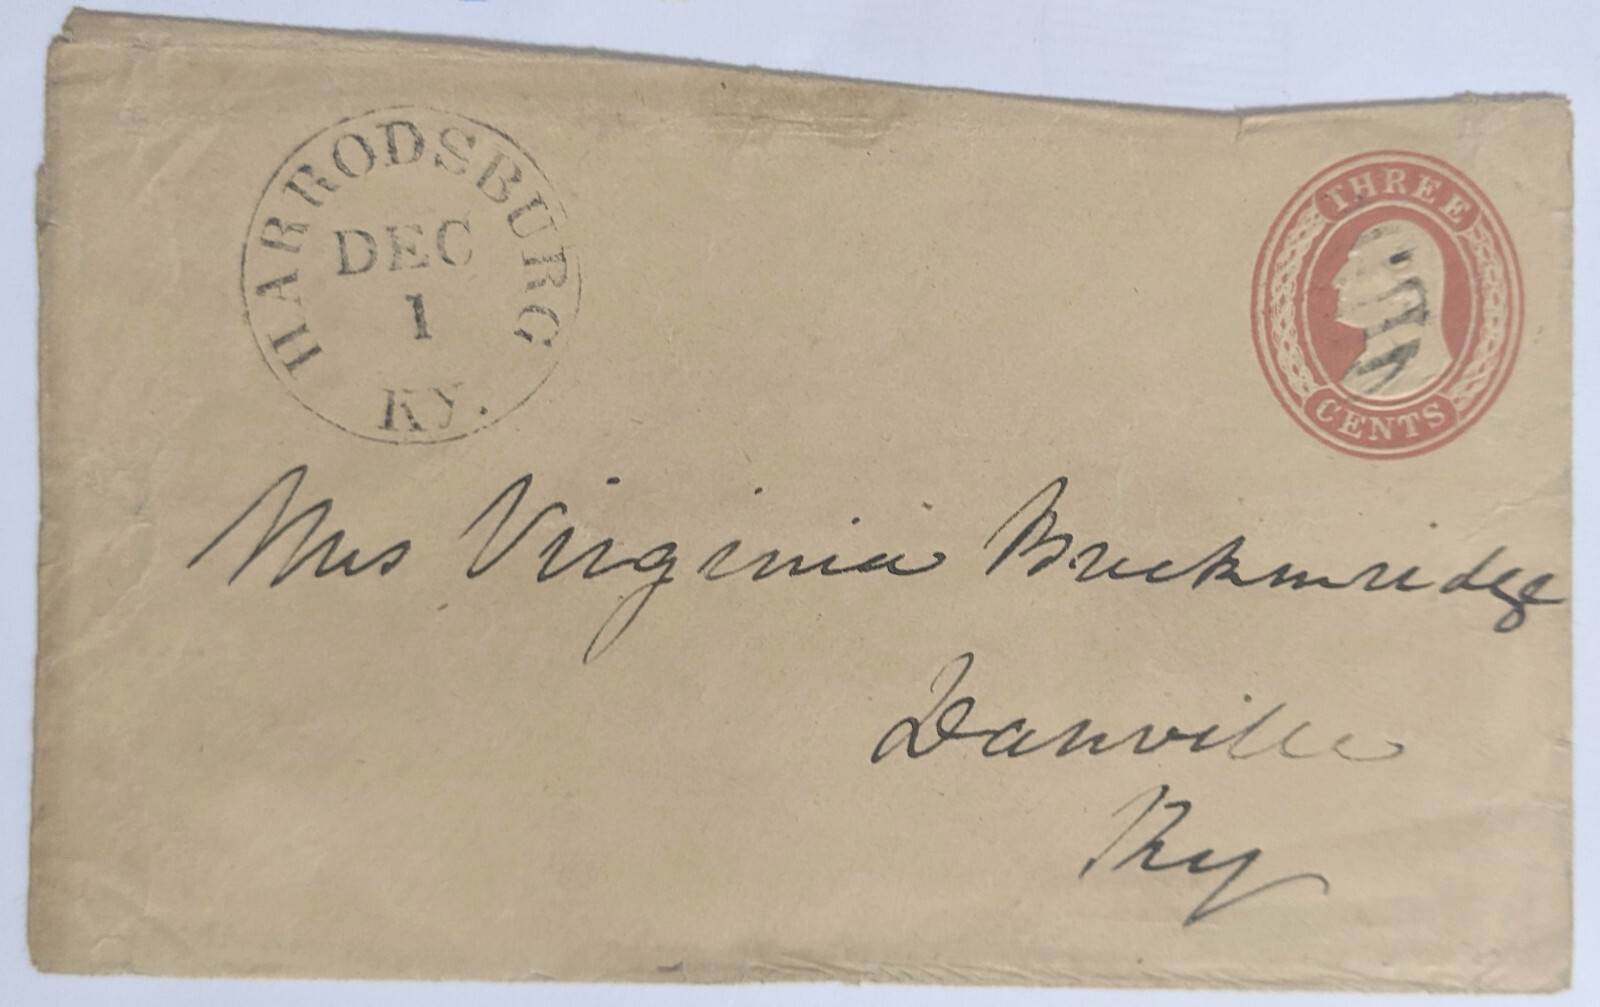 HARRODSBURG
DEC
1
KY.
THREE
CENTS
Mrs Virginia Breckinridge
Danville
Ky